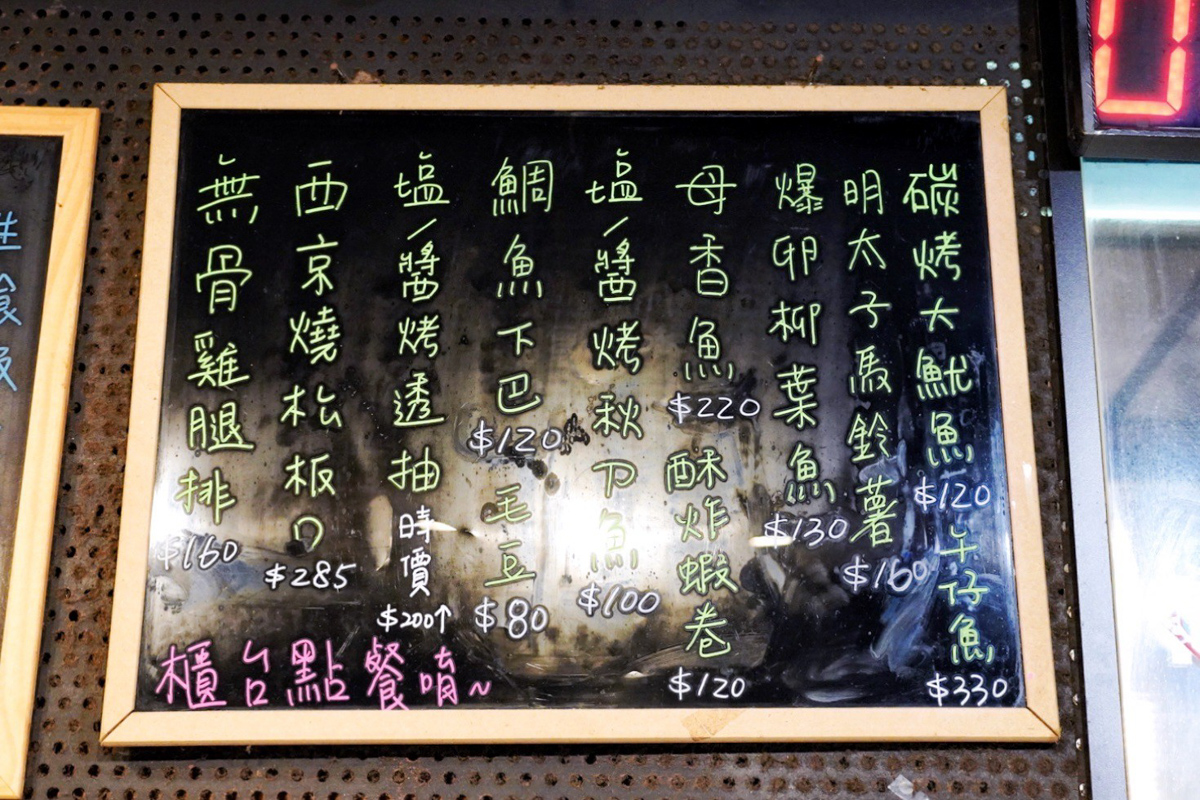 碳烤大魷魚
$120
午仔魚
$330
明太子馬鈴薯
$160
爆卵柳葉魚
$130
母香魚
$220
酥炸蝦卷
$120
塩/醬烤秋刀魚
$100
鯛魚下巴
$120
毛豆
$80
塩/醬烤透抽
時價
$200↑
西京燒松板口
$285
無骨雞腿排
$160
櫃台點餐唷~
0